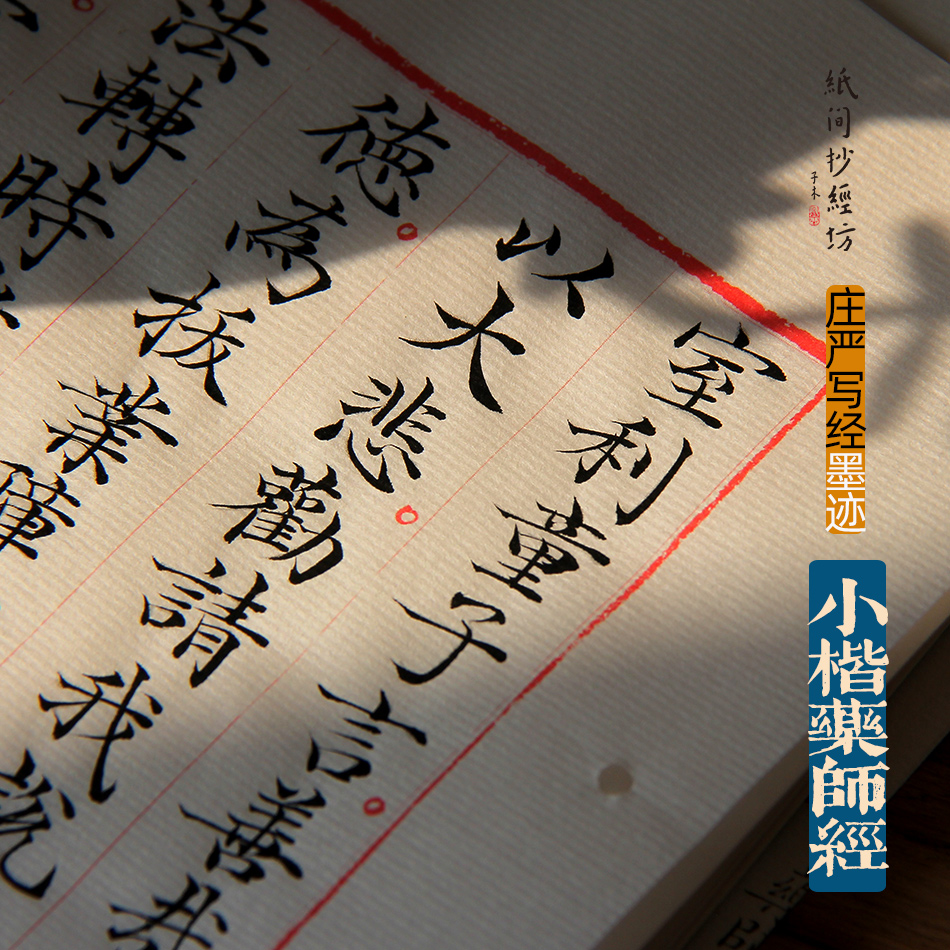 室利童子言。善哉
以大悲。勸請我說
德。為拔業障
法轉時
紙间抄經坊
子木
庄严写经墨迹
小楷藥師經